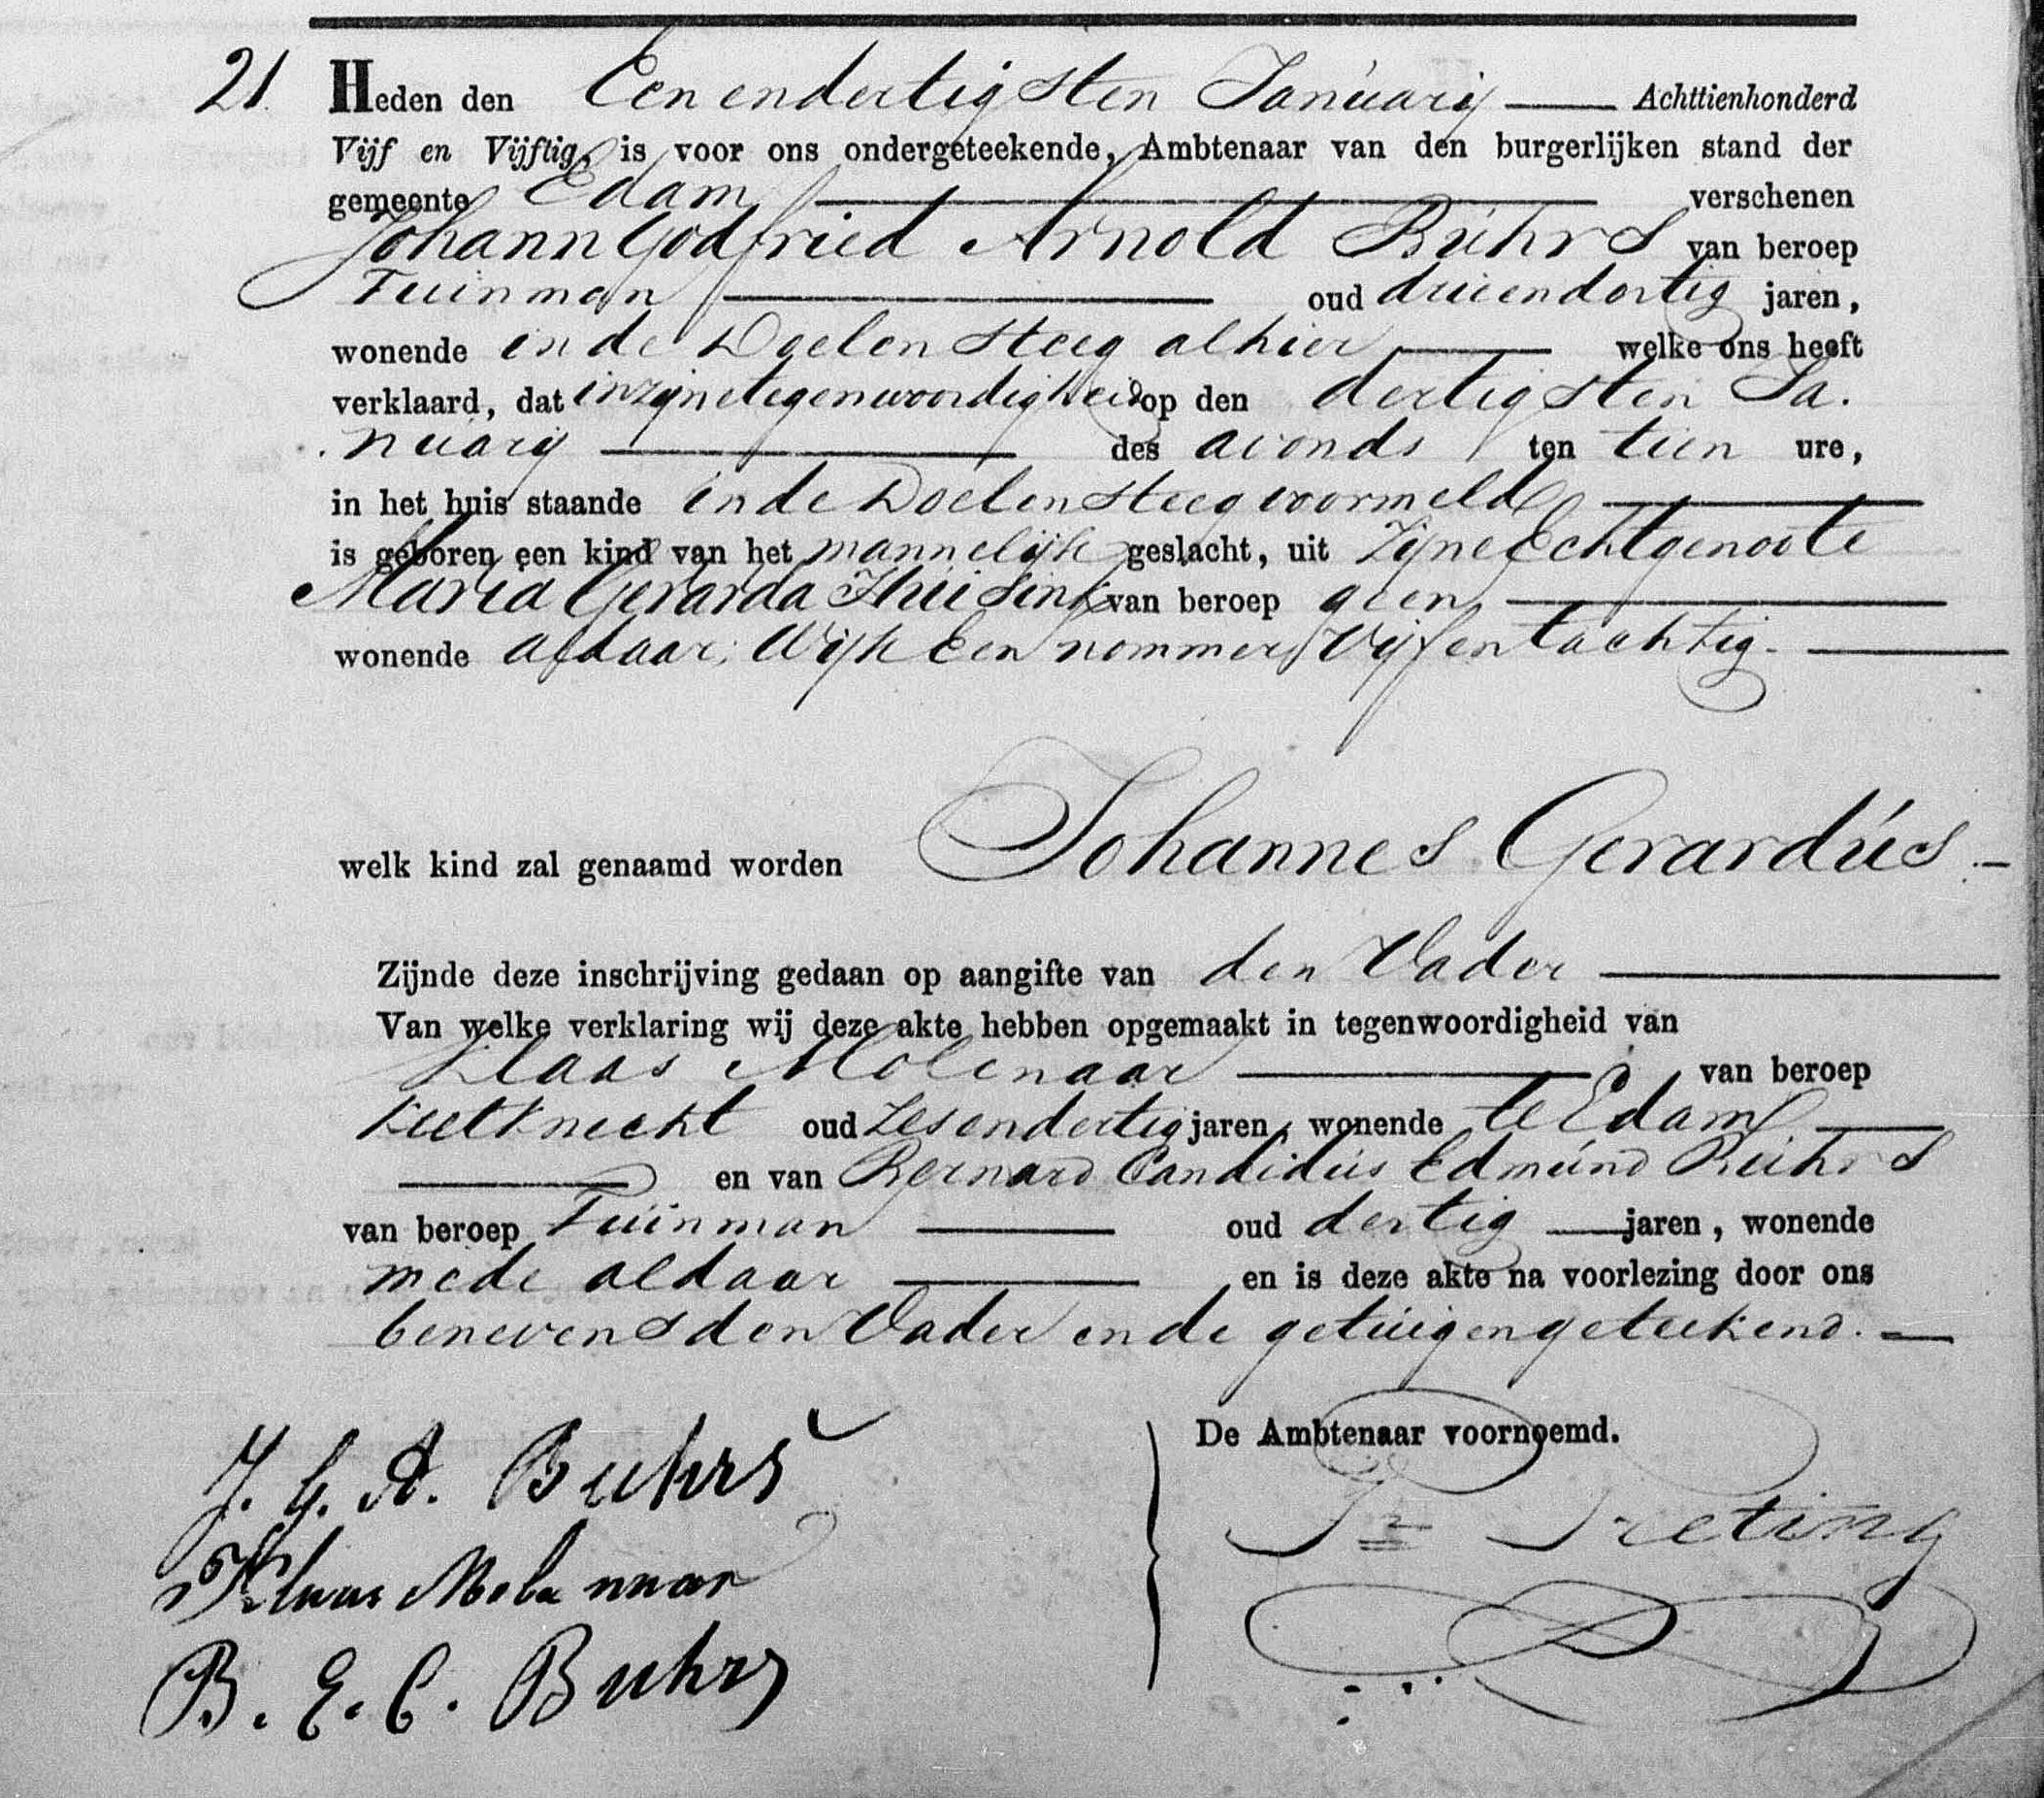 21. Heden den Een en dertigsten Januarij Achttienhonderd
Vijf en Vijftig, is voor ons ondergeteekende, Ambtenaar van den burgerlijken stand der
gemeente Edam verschenen
Johann Godfried Arnold Bührs van beroep
Tuinman oud drieendertig jaren,
wonende in de Doelen Steeg alhier welke ons heeft
verklaard, dat in zijne tegenwoordigheid op den dertigsten Ja-
nuarij des avonds ten tien ure,
in het huis staande in de Doelen steeg voormeld
is geboren een kind van het mannelijk geslacht, uit Zijne Echtgenoote
Maria Gerarda Thuisink van beroep geen
wonende aldaar, Wijk Een nommer Vijf en tachtig.
welk kind zal genaamd worden Johannes Gerardús
Zijnde deze inschrijving gedaan op aangifte van den Vader
Van welke verklaring wij deze akte hebben opgemaakt in tegenwoordigheid van
Klaas Molenaar van beroep
oud Zesendertig jaren, wonende te Edam
en van Bernard Candidús Edmúnd Bührs
van beroep Tuinman oud dertig jaren, wonende
mede aldaar en is deze akte na voorlezing door ons
benevens den Vader en de getuigen geteekend.
De Ambtenaar voornoemd.
J. G. A. Buhrs
Klaas Molenaar
B. E. C. Buhrs